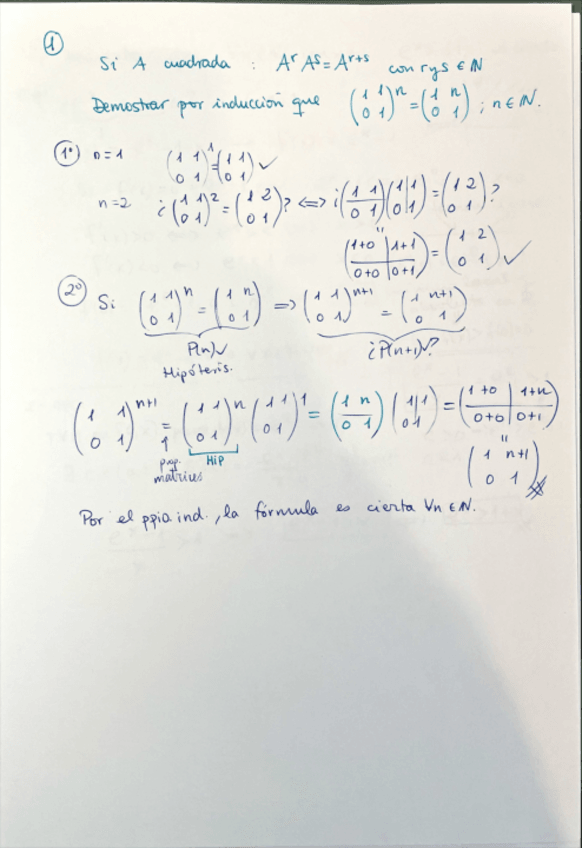 ①
Si A cuadrada : A^r A^s = A^(r+s) con r y s ∈ ℕ
Demostrar por inducción que (1 1; 0 1)^n = (1 n; 0 1) ; n ∈ ℕ.
1º n=1 (1 1; 0 1)^1 = (1 1; 0 1) ✓
n=2 ¿(1 1; 0 1)^2 = (1 2; 0 1)? ⟺ ¿(1 1; 0 1)(1 1; 0 1) = (1 2; 0 1)?
"
(1+0 | 1+1; 0+0 | 0+1) = (1 2; 0 1) ✓
2º Si (1 1; 0 1)^n = (1 n; 0 1) ⟹ (1 1; 0 1)^(n+1) = (1 n+1; 0 1)
P(n)✓ ¿P(n+1)✓?
Hipótesis.
(1 1; 0 1)^(n+1) = (1 1; 0 1)^n (1 1; 0 1)^1 = (1 n; 0 1)(1 1; 0 1) = (1+0 | 1+n; 0+0 | 0+1)
↑ prop. matrices HIP "
(1 n+1; 0 1)
Por el ppio ind., la fórmula es cierta ∀n ∈ ℕ.